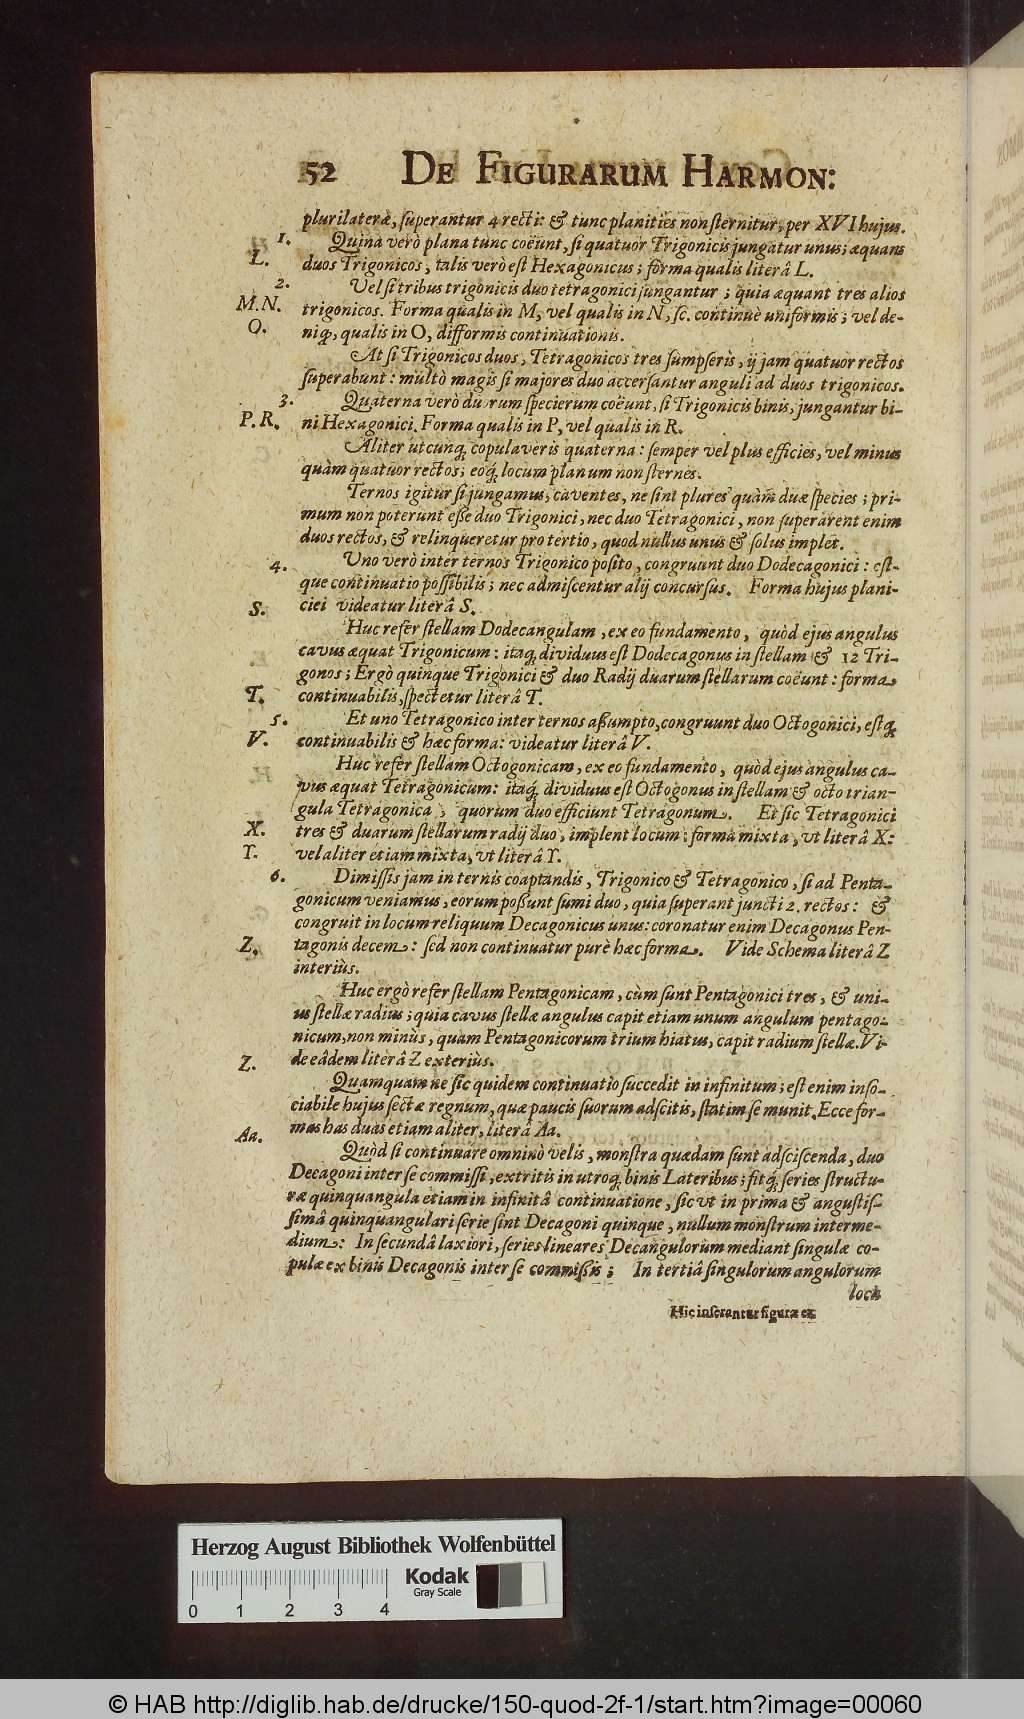 52 DE FIGURARUM HARMON:
plurilateræ, ſuperantur 4 recti: & tunc planities non ſternitur, per XVI hujus.
1. Quina verò plana tunc coëunt, ſi quatuor Trigonicis jungatur unus; æquans
L. duos Trigonicos, talis verò eſt Hexagonicus; forma qualis literâ L.
2. Vel ſi tribus trigonicis duo tetragonici jungantur; quia æquant tres alios
M.N. trigonicos. Forma qualis in M, vel qualis in N, ſc. continuè uniformis; vel de-
O. niq;, qualis in O, difformis continuationis.
At ſi Trigonicos duos, Tetragonicos tres ſumpſeris, ij jam quatuor rectos
ſuperabunt: multò magis ſi majores duo accerſantur anguli ad duos trigonicos.
3. Quaterna verò duorum ſpecierum coëunt, ſi Trigonicis binis, jungantur bi-
P.R. ni Hexagonici. Forma qualis in P, vel qualis in R.
Aliter utcunq; copulaveris quaterna: ſemper vel plus efficies, vel minus
quàm quatuor rectos; eoq́; locum planum non ſternes.
Ternos igitur ſi jungamus, caventes, ne ſint plures quàm duæ ſpecies; pri-
mum non poterunt eſſe duo Trigonici, nec duo Tetragonici, non ſuperarent enim
duos rectos, & relinqueretur pro tertio, quod nullus unus & ſolus implet.
4. Uno verò inter ternos Trigonico poſito, congruunt duo Dodecagonici: eſt-
que continuatio poſſibilis; nec admiſcentur alij concurſus. Forma hujus plani-
S. ciei videatur literâ S.
Huc refer ſtellam Dodecangulam, ex eo fundamento, quòd ejus angulus
cavus æquat Trigonicum: itaq; dividuus eſt Dodecagonus in ſtellam & 12 Tri-
gonos; Ergò quinque Trigonici & duo Radij duarum ſtellarum coëunt: forma
T. continuabilis, ſpectetur literâ T.
5. Et uno Tetragonico inter ternos aſſumpto, congruunt duo Octogonici, eſtq;
V. continuabilis & hæc forma: videatur literâ V.
Huc refer ſtellam Octogonicam, ex eo fundamento, quòd ejus angulus ca-
vus æquat Tetragonicum: itaq́; dividuus eſt Octogonus in ſtellam & octo trian-
gula Tetragonica, quorum duo efficiunt Tetragonum. Et ſic Tetragonici
X. tres & duarum ſtellarum radij duo, implent locum: forma mixta, vt literâ X:
Y. vel aliter etiam mixta, vt literâ Y.
6. Dimiſſis jam in ternis coaptandis, Trigonico & Tetragonico, ſi ad Penta-
gonicum veniamus, eorum poſſunt ſumi duo, quia ſuperant juncti 2. rectos: &
congruit in locum reliquum Decagonicus unus: coronatur enim Decagonus Pen-
Z. tagonis decem: ſed non continuatur purè hæc forma. Vide Schema literâ Z
interiùs.
Huc ergò refer ſtellam Pentagonicam, cùm ſunt Pentagonici tres, & uni-
us ſtellæ radius; quia cavus ſtellæ angulus capit etiam unum angulum pentago-
nicum, non minùs, quam Pentagonicorum trium hiatus, capit radium ſtellæ. Vi-
Z. de eâdem literâ Z exteriùs.
Quamquam ne ſic quidem continuatio ſuccedit in infinitum; eſt enim inſo-
ciabile hujus ſectæ regnum, quæ paucis ſuorum adſcitis, ſtatim ſe munit. Ecce for-
Aa. mas has duas etiam aliter, literâ Aa.
Quòd ſi continuare omninò velis, monſtra quædam ſunt adſciſcenda, duo
Decagoni inter ſe commiſſi, extritis in utroq; binis Lateribus; fitq́; ſeries ſtructu-
ræ quinquangula etiam in infinitâ continuatione, ſic vt in prima & anguſtiſ-
ſimâ quinquangulari ſerie ſint Decagoni quinque, nullum monſtrum interme-
dium: In ſecundâ laxiori, ſeries lineares Decangulorum mediant ſingulæ co-
pulæ ex binis Decagonis inter ſe commiſſis; In tertiâ ſingulorum angulorum
lock
Hic inſerantur figuræ ex
Herzog August Bibliothek Wolfenbüttel
Kodak
Gray Scale
0 1 2 3 4
© HAB http://diglib.hab.de/drucke/150-quod-2f-1/start.htm?image=00060